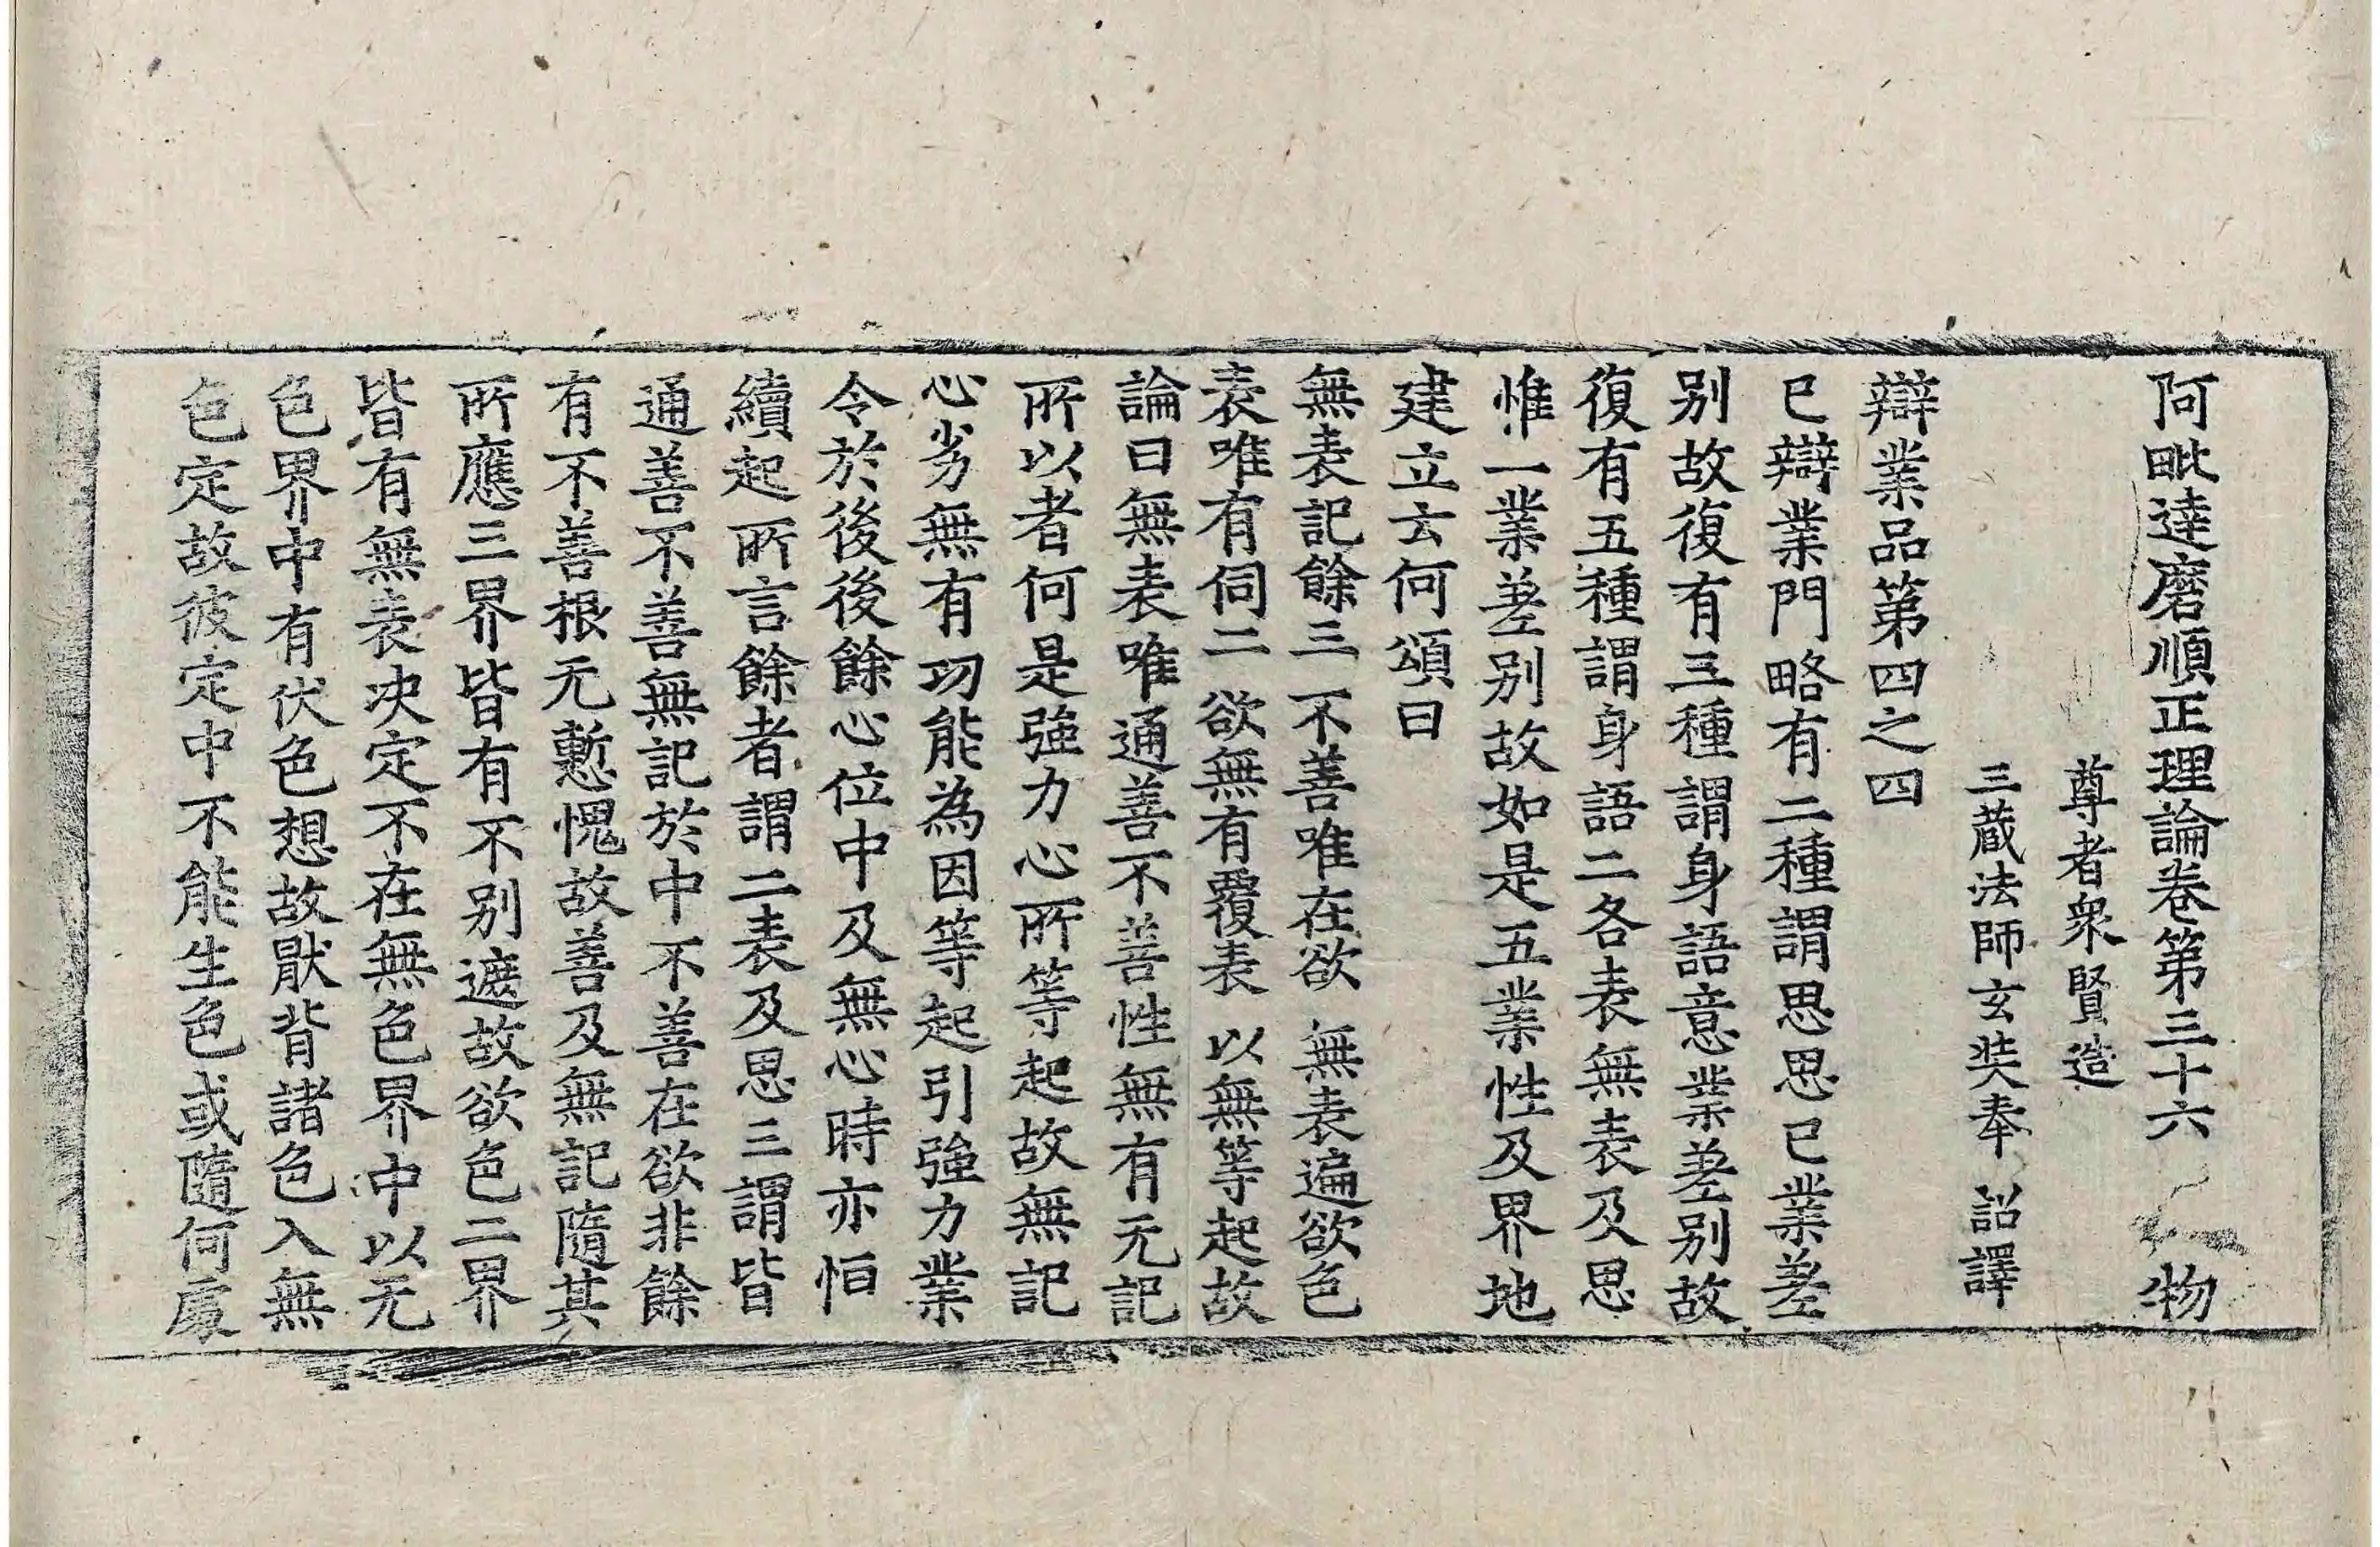 阿毗達磨順正理論卷第三十六 物
尊者衆賢造
三蔵法師玄奘奉 詔譯
辯業品第四之四
已辯業門略有二種謂思思已業差
别故復有三種謂身語意業差别故
復有五種謂身語二各表無表及思
惟一業差别故如是五業性及界地
建立云何頌曰
無表記餘三 不善唯在欲 無表遍欲色
表唯有伺二 欲無有覆表 以無等起故
論曰無表唯通善不善性無有无記
所以者何是強力心所等起故無記
心劣無有功能為因等起引強力業
令於後後餘心位中及無心時亦恒
續起所言餘者謂二表及思三謂皆
通善不善無記於中不善在欲非餘
有不善根无慙愧故善及無記隨其
所應三界皆有不别遮故欲色二界
皆有無表決定不在無色界中以无
色界中有伏色想故厭背諸色入無
色定故彼定中不能生色或隨何處